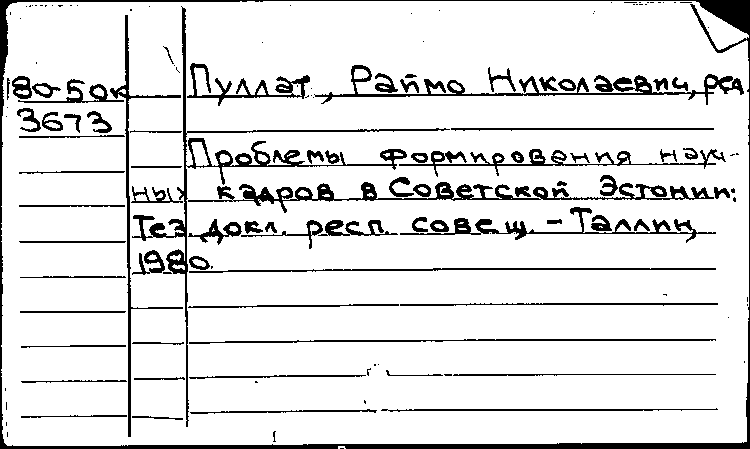 80-50к Пуллат, Раймо Николаевич, ред.
3673
Проблемы формирования науч-
ных кадров в Советской Эстонии:
Тез. докл. респ. совещ. - Таллин,
1980.